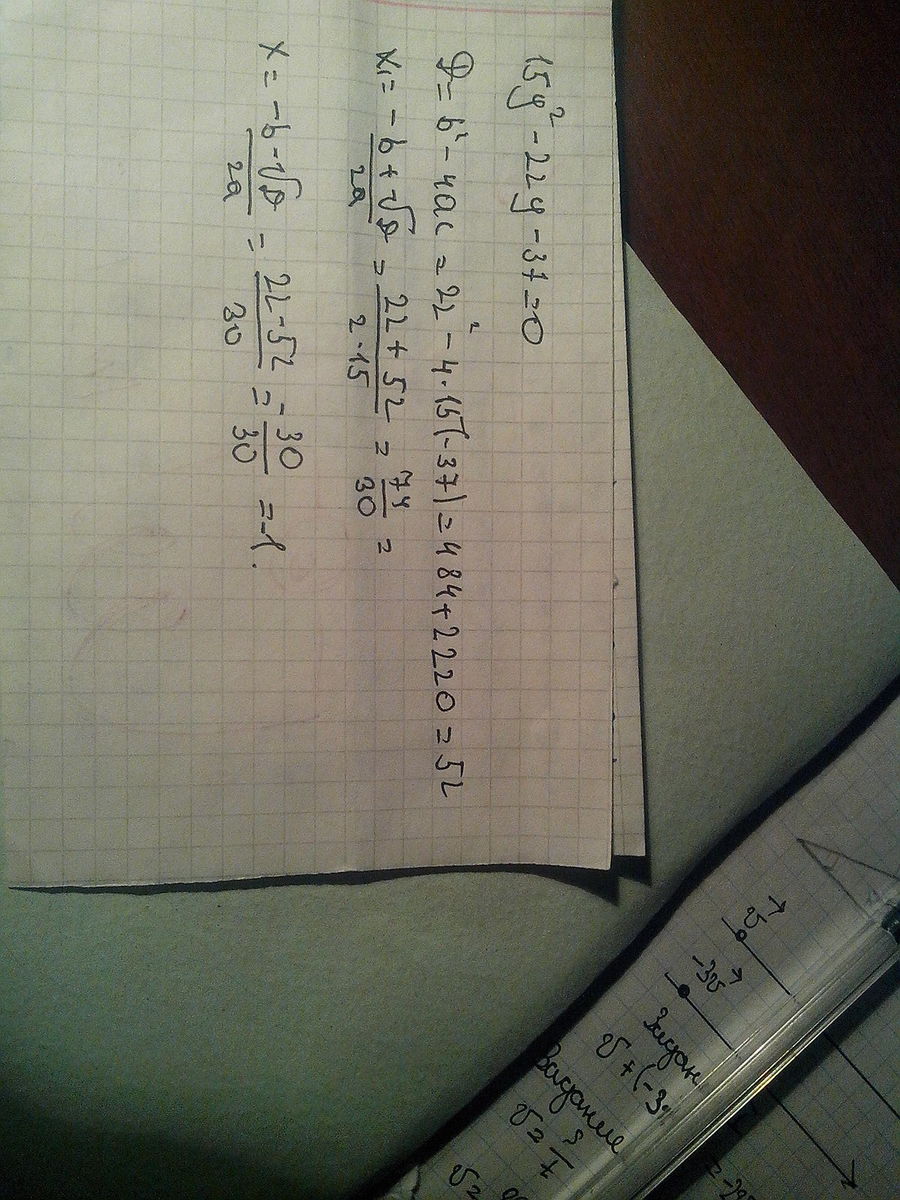 15y² - 22y - 37 = 0
D = b² - 4ac = 22² - 4·15(-37) = 484 + 2220 = 52
x₁ = (-b + √D)/2a = (22 + 52)/(2·15) = 74/30 =
x = (-b - √D)/2a = (22 - 52)/30 = -30/30 = -1.
v
-3v
Задан
v + (-3v
Задание
v = 3/7
v =